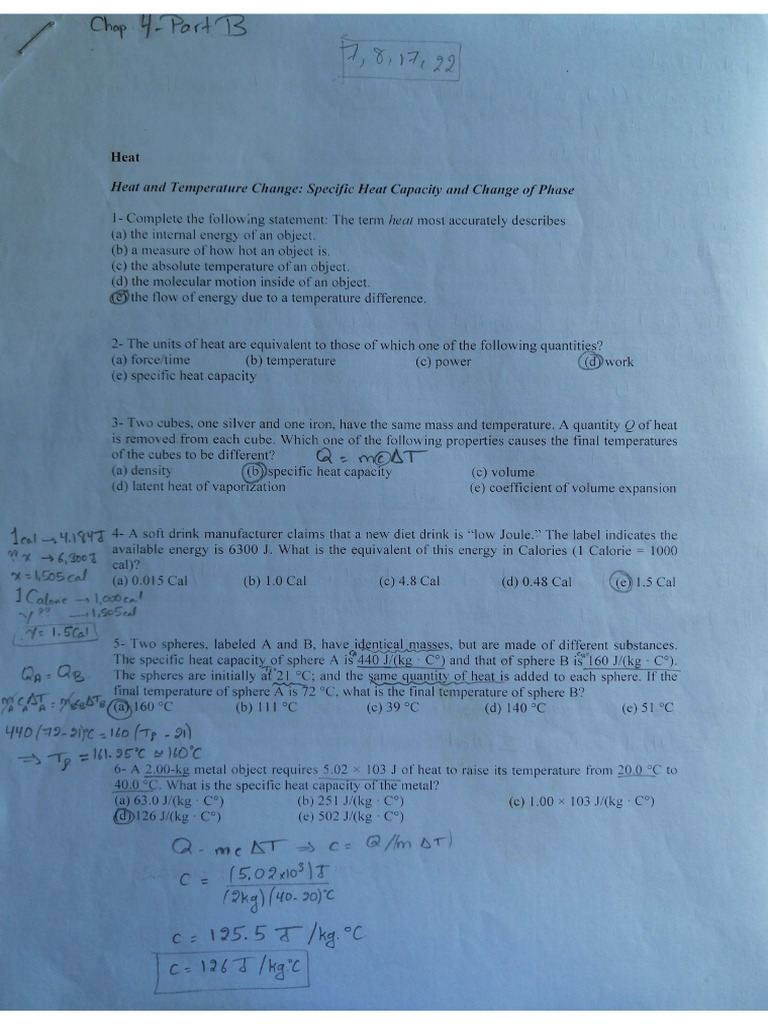 Chap 4-Part B
7, 8, 17, 22
Heat
Heat and Temperature Change: Specific Heat Capacity and Change of Phase
1- Complete the following statement: The term heat most accurately describes
(a) the internal energy of an object.
(b) a measure of how hot an object is.
(c) the absolute temperature of an object.
(d) the molecular motion inside of an object.
(e) the flow of energy due to a temperature difference.
2- The units of heat are equivalent to those of which one of the following quantities?
(a) force/time (b) temperature (c) power (d) work
(e) specific heat capacity
3- Two cubes, one silver and one iron, have the same mass and temperature. A quantity Q of heat
is removed from each cube. Which one of the following properties causes the final temperatures
of the cubes to be different? Q = mcΔT
(a) density (b) specific heat capacity (c) volume
(d) latent heat of vaporization (e) coefficient of volume expansion
1cal → 4.184J
?? x → 6,300J
x = 1,505 cal
1 Calorie → 1,000 cal
y ?? → 1,505 cal
y = 1.5 Cal
4- A soft drink manufacturer claims that a new diet drink is “low Joule.” The label indicates the
available energy is 6300 J. What is the equivalent of this energy in Calories (1 Calorie = 1000
cal)?
(a) 0.015 Cal (b) 1.0 Cal (c) 4.8 Cal (d) 0.48 Cal (e) 1.5 Cal
5- Two spheres, labeled A and B, have identical masses, but are made of different substances.
The specific heat capacity of sphere A is 440 J/(kg · C°) and that of sphere B is 160 J/(kg · C°).
The spheres are initially at 21 °C; and the same quantity of heat is added to each sphere. If the
final temperature of sphere A is 72 °C, what is the final temperature of sphere B?
(a) 160 °C (b) 111 °C (c) 39 °C (d) 140 °C (e) 51 °C
Q_A = Q_B
m_A c_A ΔT_A = m_B c_B ΔT_B
440 (72-21)°C = 160 (T_f - 21)
⇒ T_f = 161.25°C ≃ 160°C
6- A 2.00-kg metal object requires 5.02 × 103 J of heat to raise its temperature from 20.0 °C to
40.0 °C. What is the specific heat capacity of the metal?
(a) 63.0 J/(kg · C°) (b) 251 J/(kg · C°) (c) 1.00 × 103 J/(kg · C°)
(d) 126 J/(kg · C°) (e) 502 J/(kg · C°)
Q = mcΔT ⇒ c = Q/mΔT
c = (5.02×10³)J
(2kg)(40-20)°C
c = 125.5 J/kg.°C
c = 126 J/kg°C